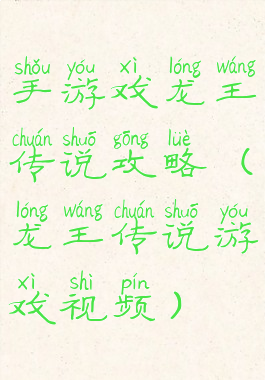 shǒu yóu xì lóng wáng
手游戏龙王
chuán shuō gōng lüè
传说攻略（
lóng wáng chuán shuō yóu
龙王传说游
xì shì pín
戏视频）